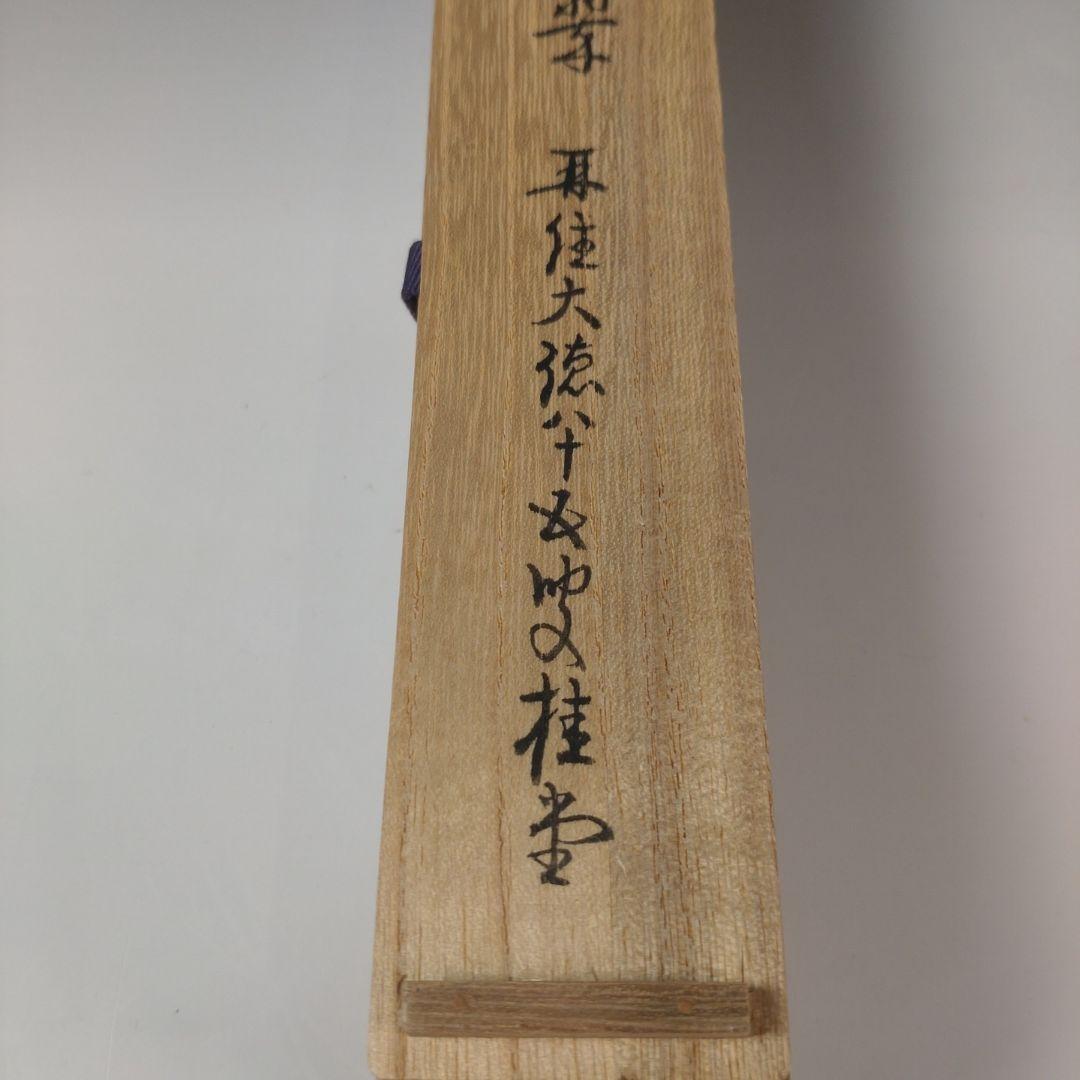 再住大徳八十五叟桂堂